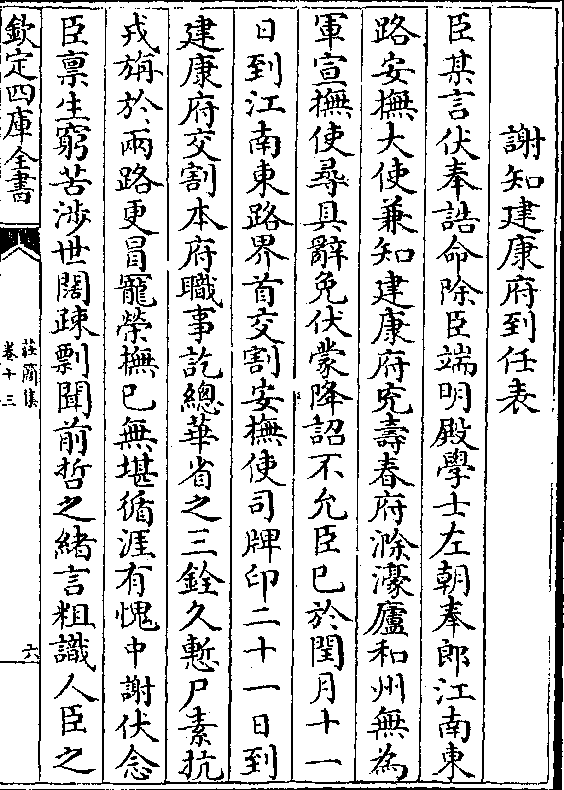 謝知建康府到任表
臣某言伏奉誥命除臣端明殿學士左朝奉郎江南東
路安撫大使兼知建康府兖壽春府滁濠廬和州無為
軍宣撫使尋具辭免伏蒙降詔不允臣已於閏月十一
日到江南東路界首交割安撫使司牌印二十一日到
建康府交割本府職事訖總華省之三銓久慙尸素抗
戎旃於兩路更冒寵榮撫已無堪循涯有愧中謝伏念
臣禀生窮苦渉世闊疎剽聞前哲之緒言粗識人臣之
欽定四庫全書
莊簡集
卷十三
六